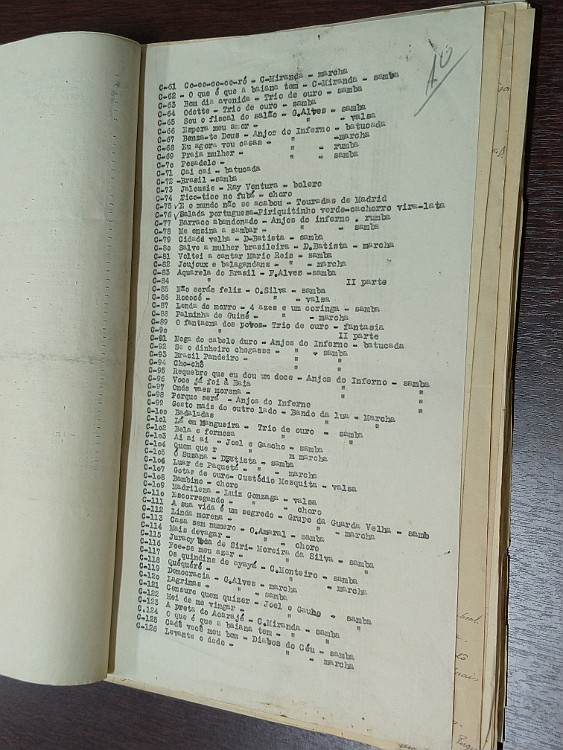 10
C-61 Co-co-co-co-ró - C-Miranda - marcha
C-62 - O que é que a baiana tem - C-Miranda - samba
C-63 Bom dia avenida - Trio de ouro - samba
C-64 Odette - Trio de ouro - samba
C-65 Sou o fiscal do salão - G.Alves - samba
C-66 Espera meu amor - " - valsa
C-67 Benza-te Deus - Anjos do Inferno - batucada
C-68 Eu agora vou casar - " -marcha
C-69 Praia mulher - " - rumba
C-7o Pesadelo - " - samba
C-71 Cai cai - batucada
C-72 -Brasil -samba
C-73 Jalousie - Ray Ventura - bolero
C-74 Tico-tico no fubá - choro
C-75 E o mundo não se acabou - Touradas de Madrid
C-76 Salada portuguesa-Piriquitinho verde-cachorro vira-lata
C-77 Barraco abandonado - Anjos do inferno . rumba
C-78 Me ensina a sambar - " - samba
C-79 Cidade velha - D-Batista - samba
C-80 Salve a mulher brasileira - D.Batista - marcha
C-81 Voltei a cantar Mario Reis - samba
C-82 Joujoux e balagandans - " - marcha
C-83 Aquarela do Brasil - F.Alves -samba
C-84 " II parte
C-85 Não serás feliz - O.Silva - samba
C-86 Rococó - " - valsa
C-87 Lenda do morro - 4 azes e um coringa - samba
C-88 Palminha de Guiné - " - marcha
C-89 O fantasma dos povos- Trio de ouro - fantasia
C-9o " II parte
C-91 Nega do cabelo duro - Anjos do Inferno - batucada
C-92 Se o dinheiro chegasse - " - samba
C-93 Brasil Pandeiro - " "
C-94 Cho-chô " "
C-95 Requebre que eu dou um doce - Anjos do Inferno - samba
C-96 Voce já foi á Baia " "
C-97 Onde vaes morena - " "
C-98 Porque será - Anjos do Inferno "
C-99 Gosto mais do outro lado - Bando da lua - Marcha
C-1oo Badaladas
C-1o1 Lá em Mangueira - Trio de ouro - samba
C-1o2 Bela e formosa " "
C-1o3 Ai ai ai - Joel e Gaucho - samba
C-1o4 Quem que r " marcha
C-1o5 Ô Suzana - DBatista - samba
C-1o6 Luar de Paquetá - " - marcha
C-1o7 Gotas de ouro- Custódio Mesquita - valsa
C-1o8 Bambino - choro
C-1o9 Madrilena - Luiz Gonzaga - valsa
C-11o Escorregando - " - choro
C-111 A sua vida é um segredo - Grupo da Guarda Velha - samb
C-112 Linda morena - " - marcha
C-113 Casa sem numero - O.Amaral - samba
C-114 Mais devagar - " - choro
C-115 Juracy Boca de Siri- Moreira da Silva - samba
C-116 Foe-se meu agar - " "
C-117 Os quindins de yayá - C.Monteiro - samba
C-118 Quéquéré - " - marcha
C-119 Democracia - G.Alves - marcha
C-12o Lagrimas - " - samba
C-121 Censure quem quizer - Joel e Gaucho - samba
C-122 Hei de me vingar - " "
C-123 A preta do Acarajé - C.Miranda - samba
C.124 O que é que a baiana tem - " "
C-125 Cadê você meu bem - Diabos do Céu - samba
C-126 Levante o dedo - " - marcha